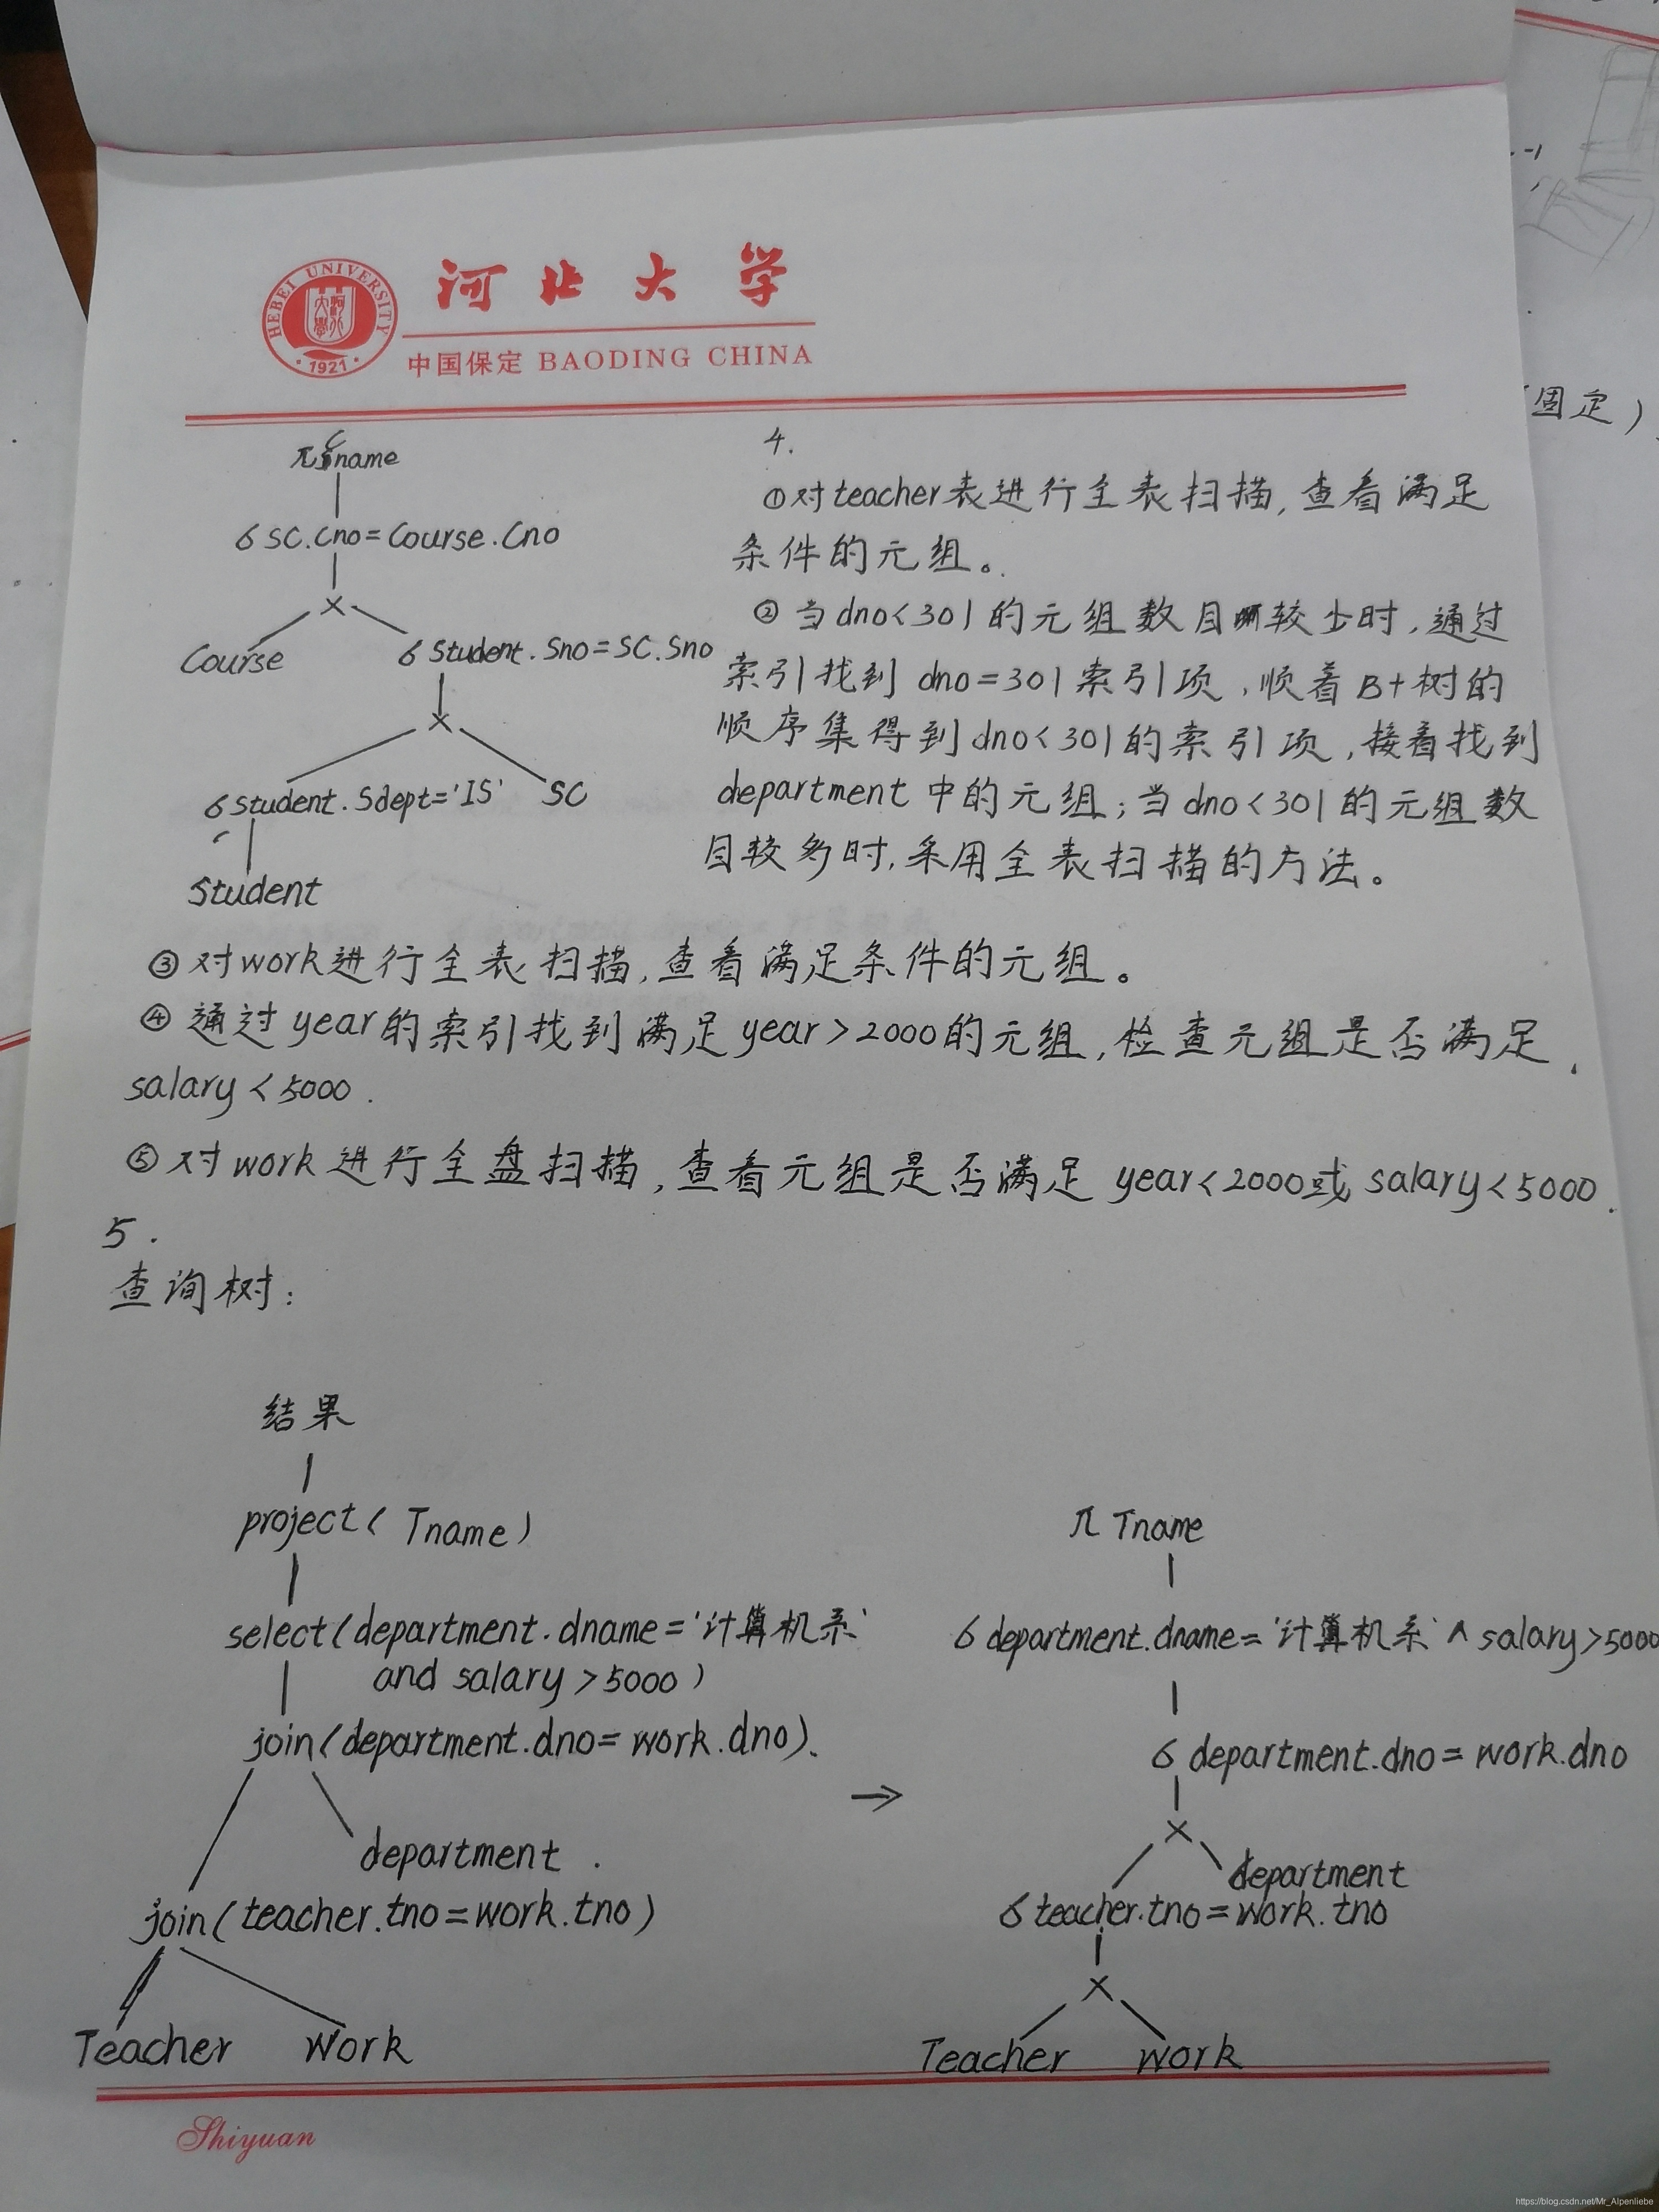 河北大学
HEBEI UNIVERSITY
1921
中国保定 BAODING CHINA
-1
(固定)
π Cname
6 SC.Cno=Course.Cno
×
Course
6 Student.Sno=SC.Sno
×
6 Student.Sdept='IS'
SC
Student
4.
①对teacher表进行全表扫描,查看满足
条件的元组。
②当dno<301的元组数目较少时,通过
索引找到dno=301索引项,顺着B+树的
顺序集得到dno<301的索引项,接着找到
department中的元组;当dno<301的元组数
目较多时,采用全表扫描的方法。
③对work进行全表扫描,查看满足条件的元组。
④通过year的索引找到满足year>2000的元组,检查元组是否满足
salary<5000.
⑤对work进行全盘扫描,查看元组是否满足year<2000或salary<5000.
5.
查询树:
结果
project(Tname)
select(department.dname='计算机系'
and salary>5000)
join(department.dno=work.dno).
department.
join(teacher.tno=work.tno)
Teacher
Work
→
π Tname
6 department.dname='计算机系'∧salary>5000
6 department.dno=work.dno
×
department
6 teacher.tno=work.tno
×
Teacher
Work
Shiyuan
https://blog.csdn.net/Mr_Alpenliebe